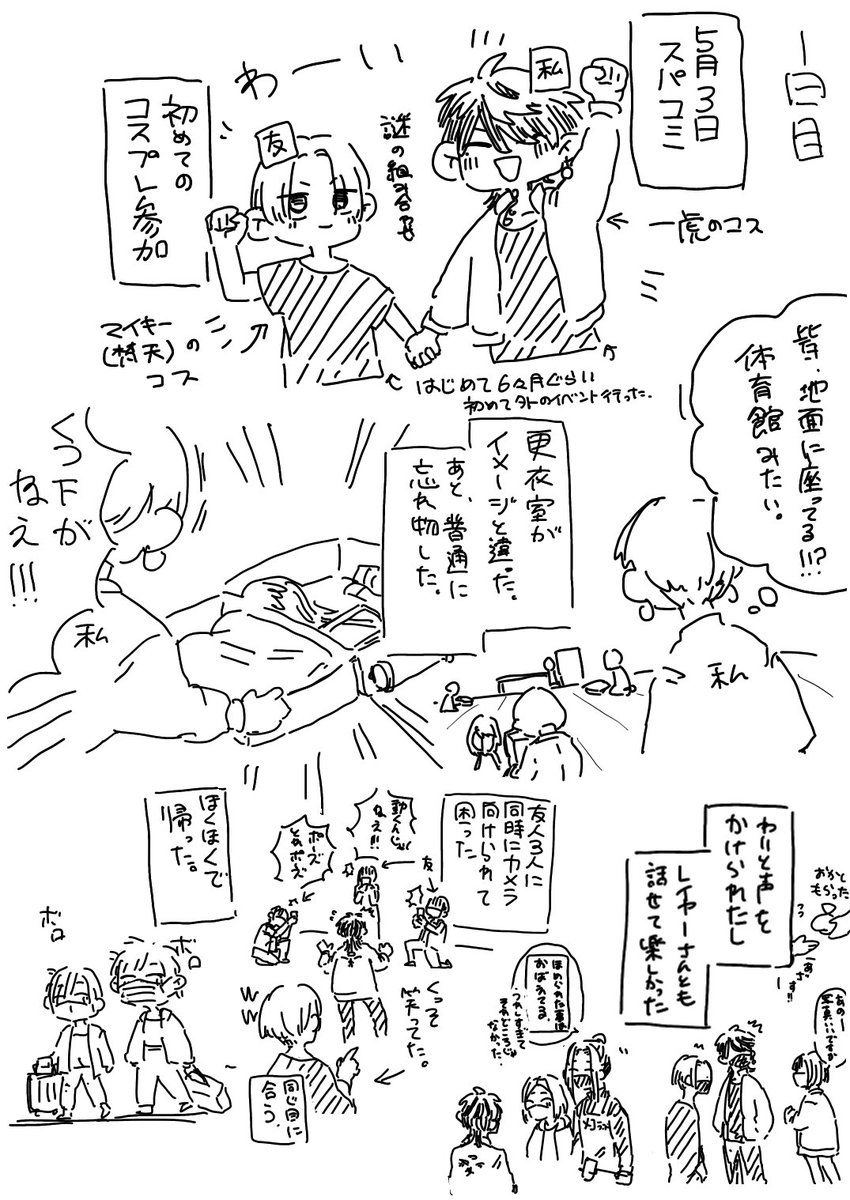 一日目
5月3日
スパコミ
私
わーい
友
謎の組み合わせ
初めての
コスプレ参加
←一虎のコス
マイキー
(梵天)の
コス
はじめて6ヶ月ぐらい
初めて外のイベント行った。
皆、地面に座ってる!!?
体育館みたい。
私
更衣室が
イメージと違った。
あと、普通に
忘れ物した。
くつ下が
ねえ!!!
私
わりと声を
かけられたし
レイヤーさんとも
話せて楽しかった
おかし
もらった
あのー
写真いいですか
ほめられた事は
おぼえてる。
友人3人に
同時にカメラ
向けられて
困った
動くんじゃ
ねえ!!!
ポーズ
友
くっそ
笑ってた。
同じ目に
合う。
ほくほくで
帰った。
ボロ
ボロ